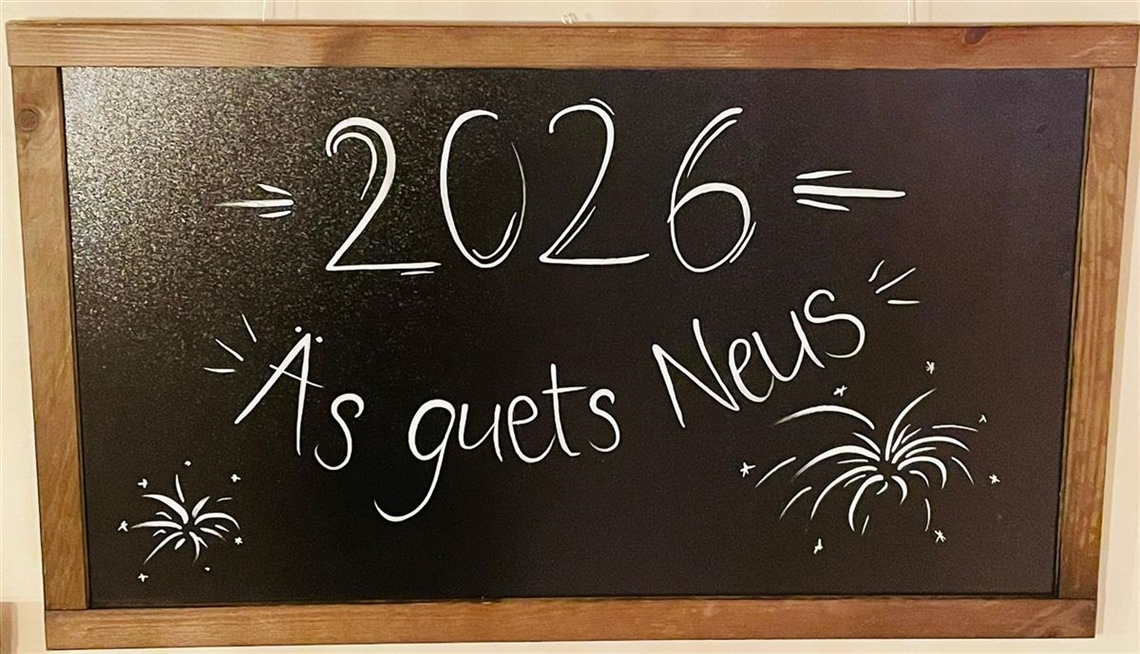 2026
Äs guets Neus